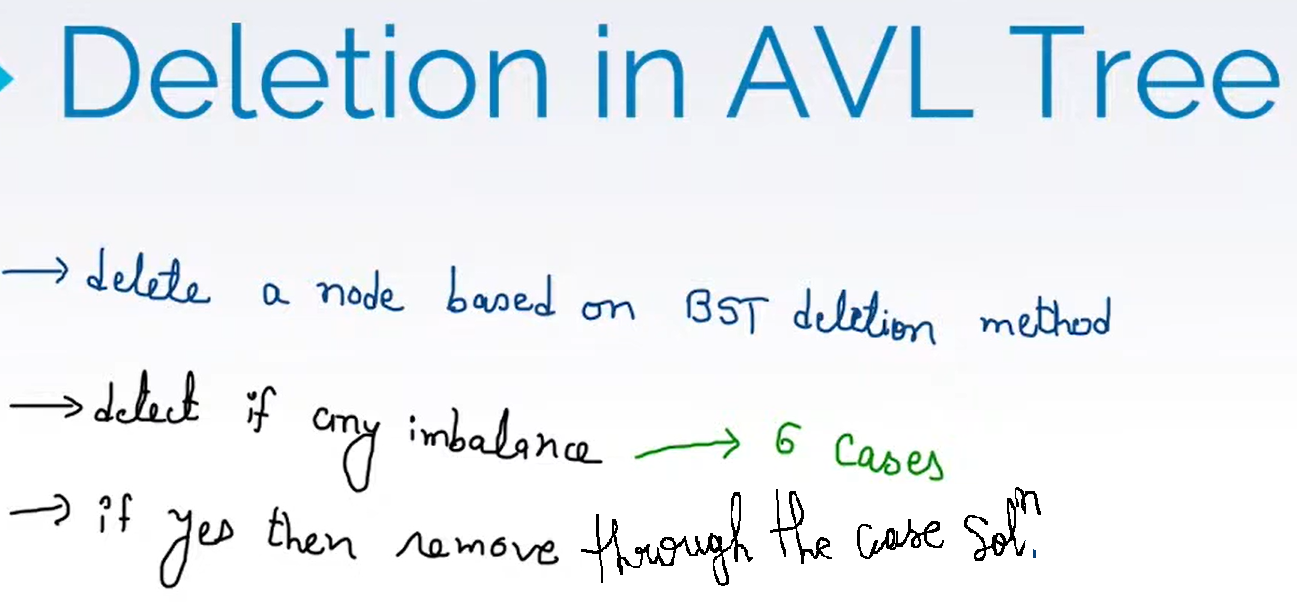 Deletion in AVL Tree
→ delete a node based on BST deletion method
→ detect if any imbalance → 6 cases
→ if yes then remove through the case solⁿ.